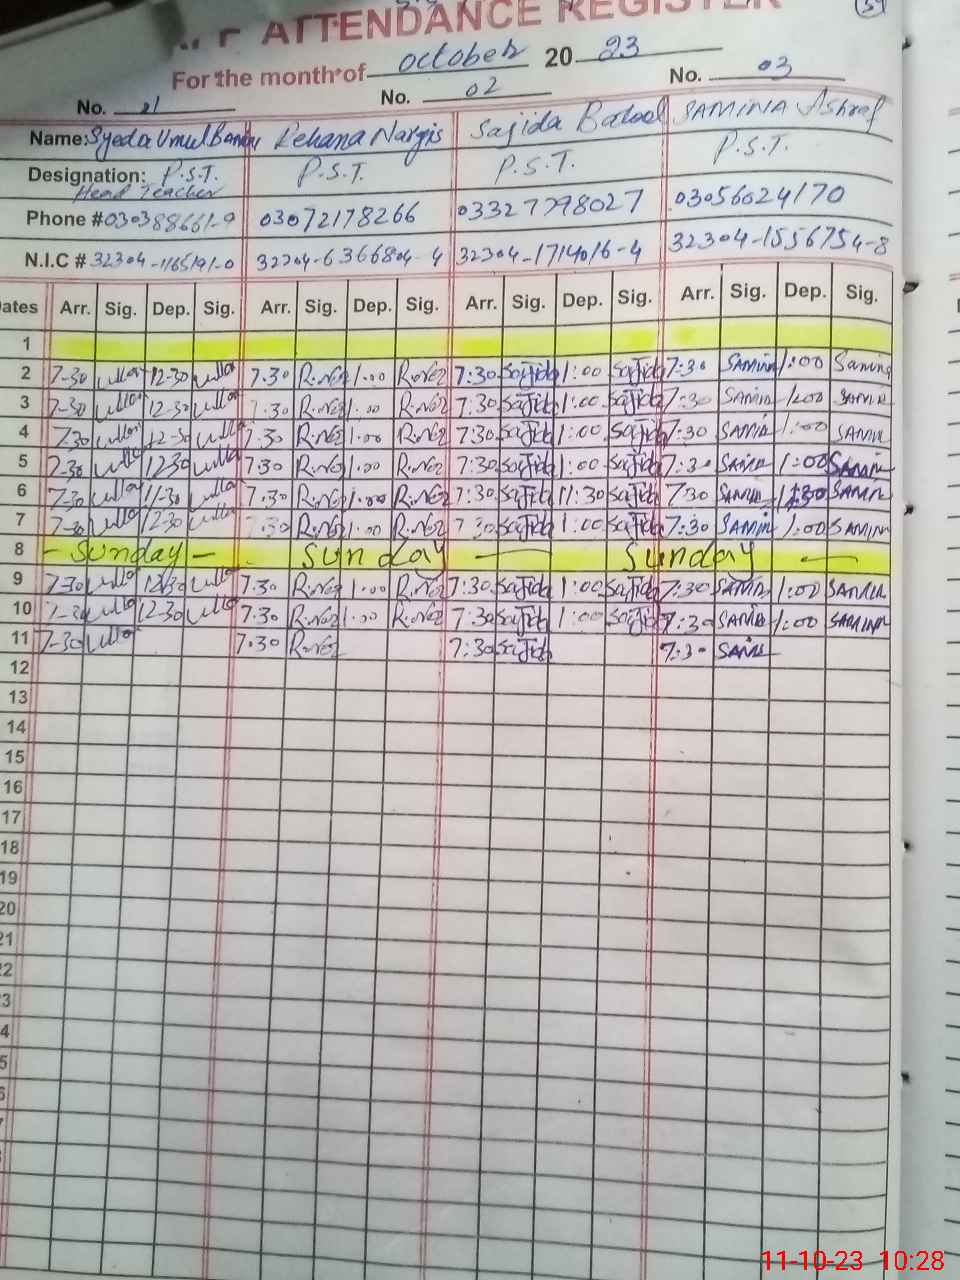 ATTENDANCE REGISTER
For the month of October 20 23
No. 01 No. 02 No. 03
Name: Syeda Rehana Nargis Sajida Batool SAMINA Ashraf
Designation: P.S.T. P.S.T. P.S.T. P.S.T.
Head Teacher
Phone # 03072178266 03327798027 03056024170
N.I.C # 32304-1165191-0 32304-6366804-4 32304-1714016-4 32304-1556754-8
Dates Arr. Sig. Dep. Sig. Arr. Sig. Dep. Sig. Arr. Sig. Dep. Sig. Arr. Sig. Dep. Sig.
1
2 7-30 12-30 7.30 R.Nez 1.00 R.Nez 7:30 Sajida 1:00 Sajida 7:30 SAMINA 1:00 Samina
3 7-30 12-30 7.30 R.Nez 1.00 R.Nez 7:30 Sajida 1:00 Sajida 7:30 SAMINA 1:00 SAMINA
4 7-30 12-30 7.30 R.Nez 1.00 R.Nez 7:30 Sajida 1:00 Sajida 7:30 SAMINA 1:00 SAMINA
5 7-30 12-30 7.30 R.Nez 1.00 R.Nez 7:30 Sajida 1:00 Sajida 7:30 SAMINA 1:00 SAMINA
6 7-30 11-30 7.30 R.Nez R.Nez 7:30 Sajida 11:30 Sajida 7:30 SAMINA SAMINA
7 7-30 12-30 7.30 R.Nez 1.00 R.Nez 7:30 Sajida 1:00 Sajida 7:30 SAMINA 1:00 SAMINA
8 - Sunday - Sunday — Sunday —
9 7-30 12-30 7.30 R.Nez 1.00 R.Nez 7:30 Sajida 1:00 Sajida 7:30 SAMINA 1:00 SAMINA
10 7-30 12-30 7.30 R.Nez 1.00 R.Nez 7:30 Sajida 1:00 Sajida 7:30 SAMINA 1:00 SAMINA
11 7-30 7.30 R.Nez 7:30 Sajida 7:30 SAMINA
12
13
14
15
16
17
18
19
20
21
22
11-10-23 10:28